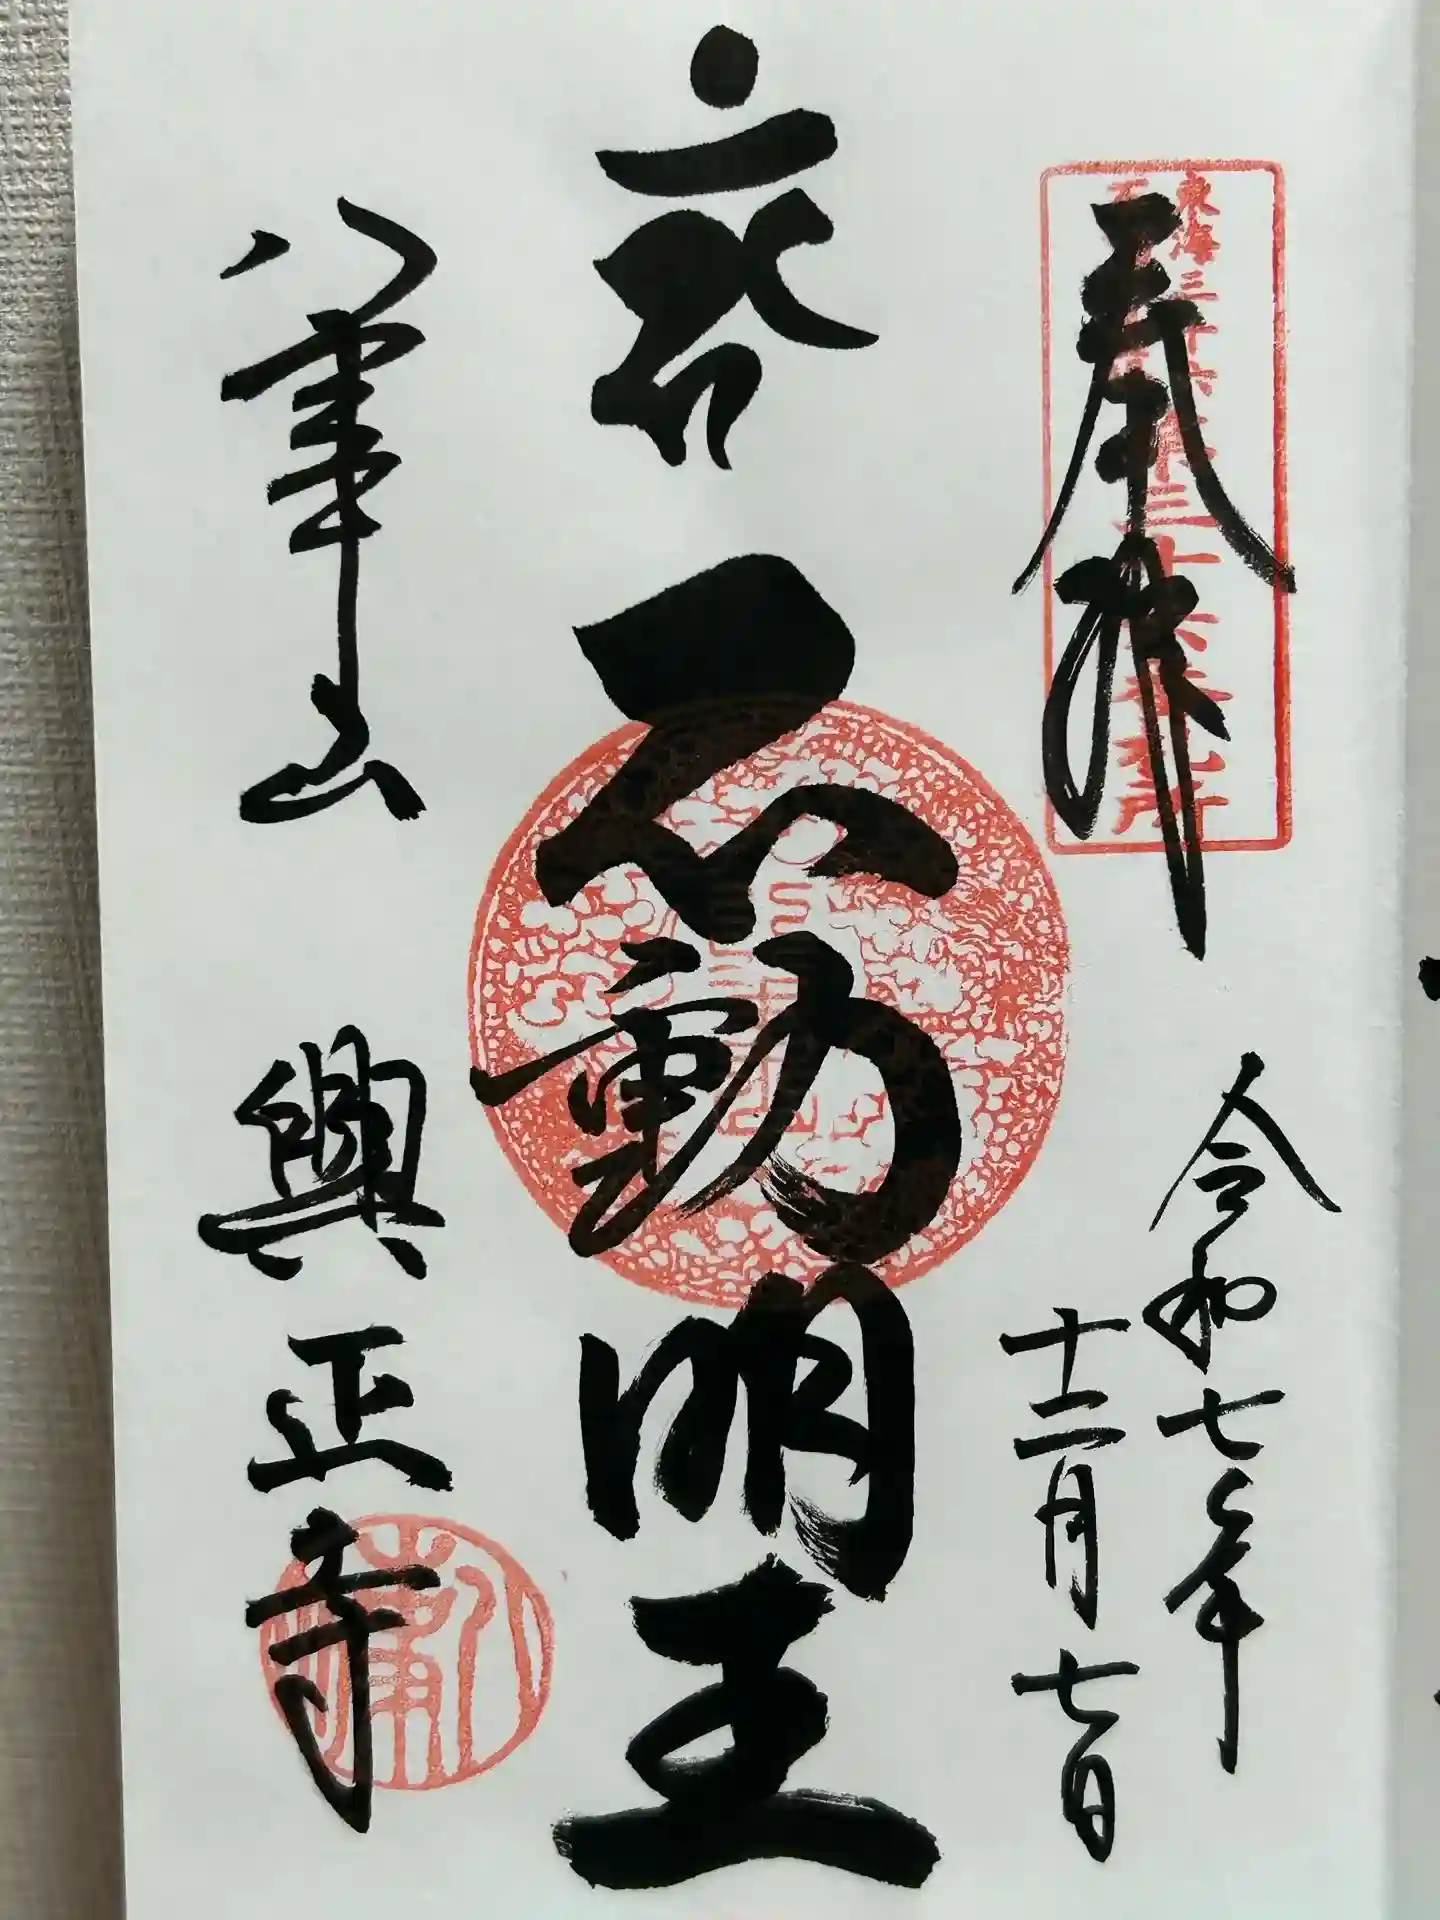 奉拝
東海三十六不動尊三十六番札所
令和七年
十二月七日
不動明王
八事山 興正寺